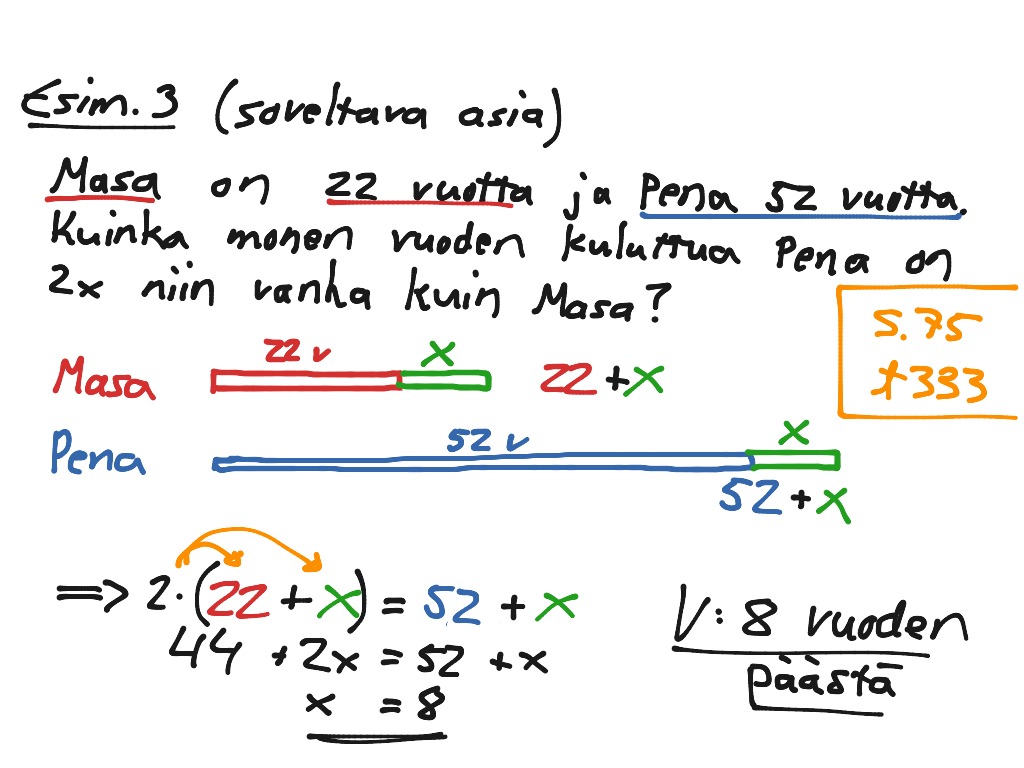 Esim. 3 (soveltava asia)
Masa on 22 vuotta ja Pena 52 vuotta.
Kuinka monen vuoden kuluttua Pena on
2x niin vanha kuin Masa?
5.75
+333
22 v x
Masa 22 + x
52 v x
Pena
52 + x
⟹ 2·(22 + x) = 52 + x
44 + 2x = 52 + x
x = 8
V: 8 vuoden
päästä